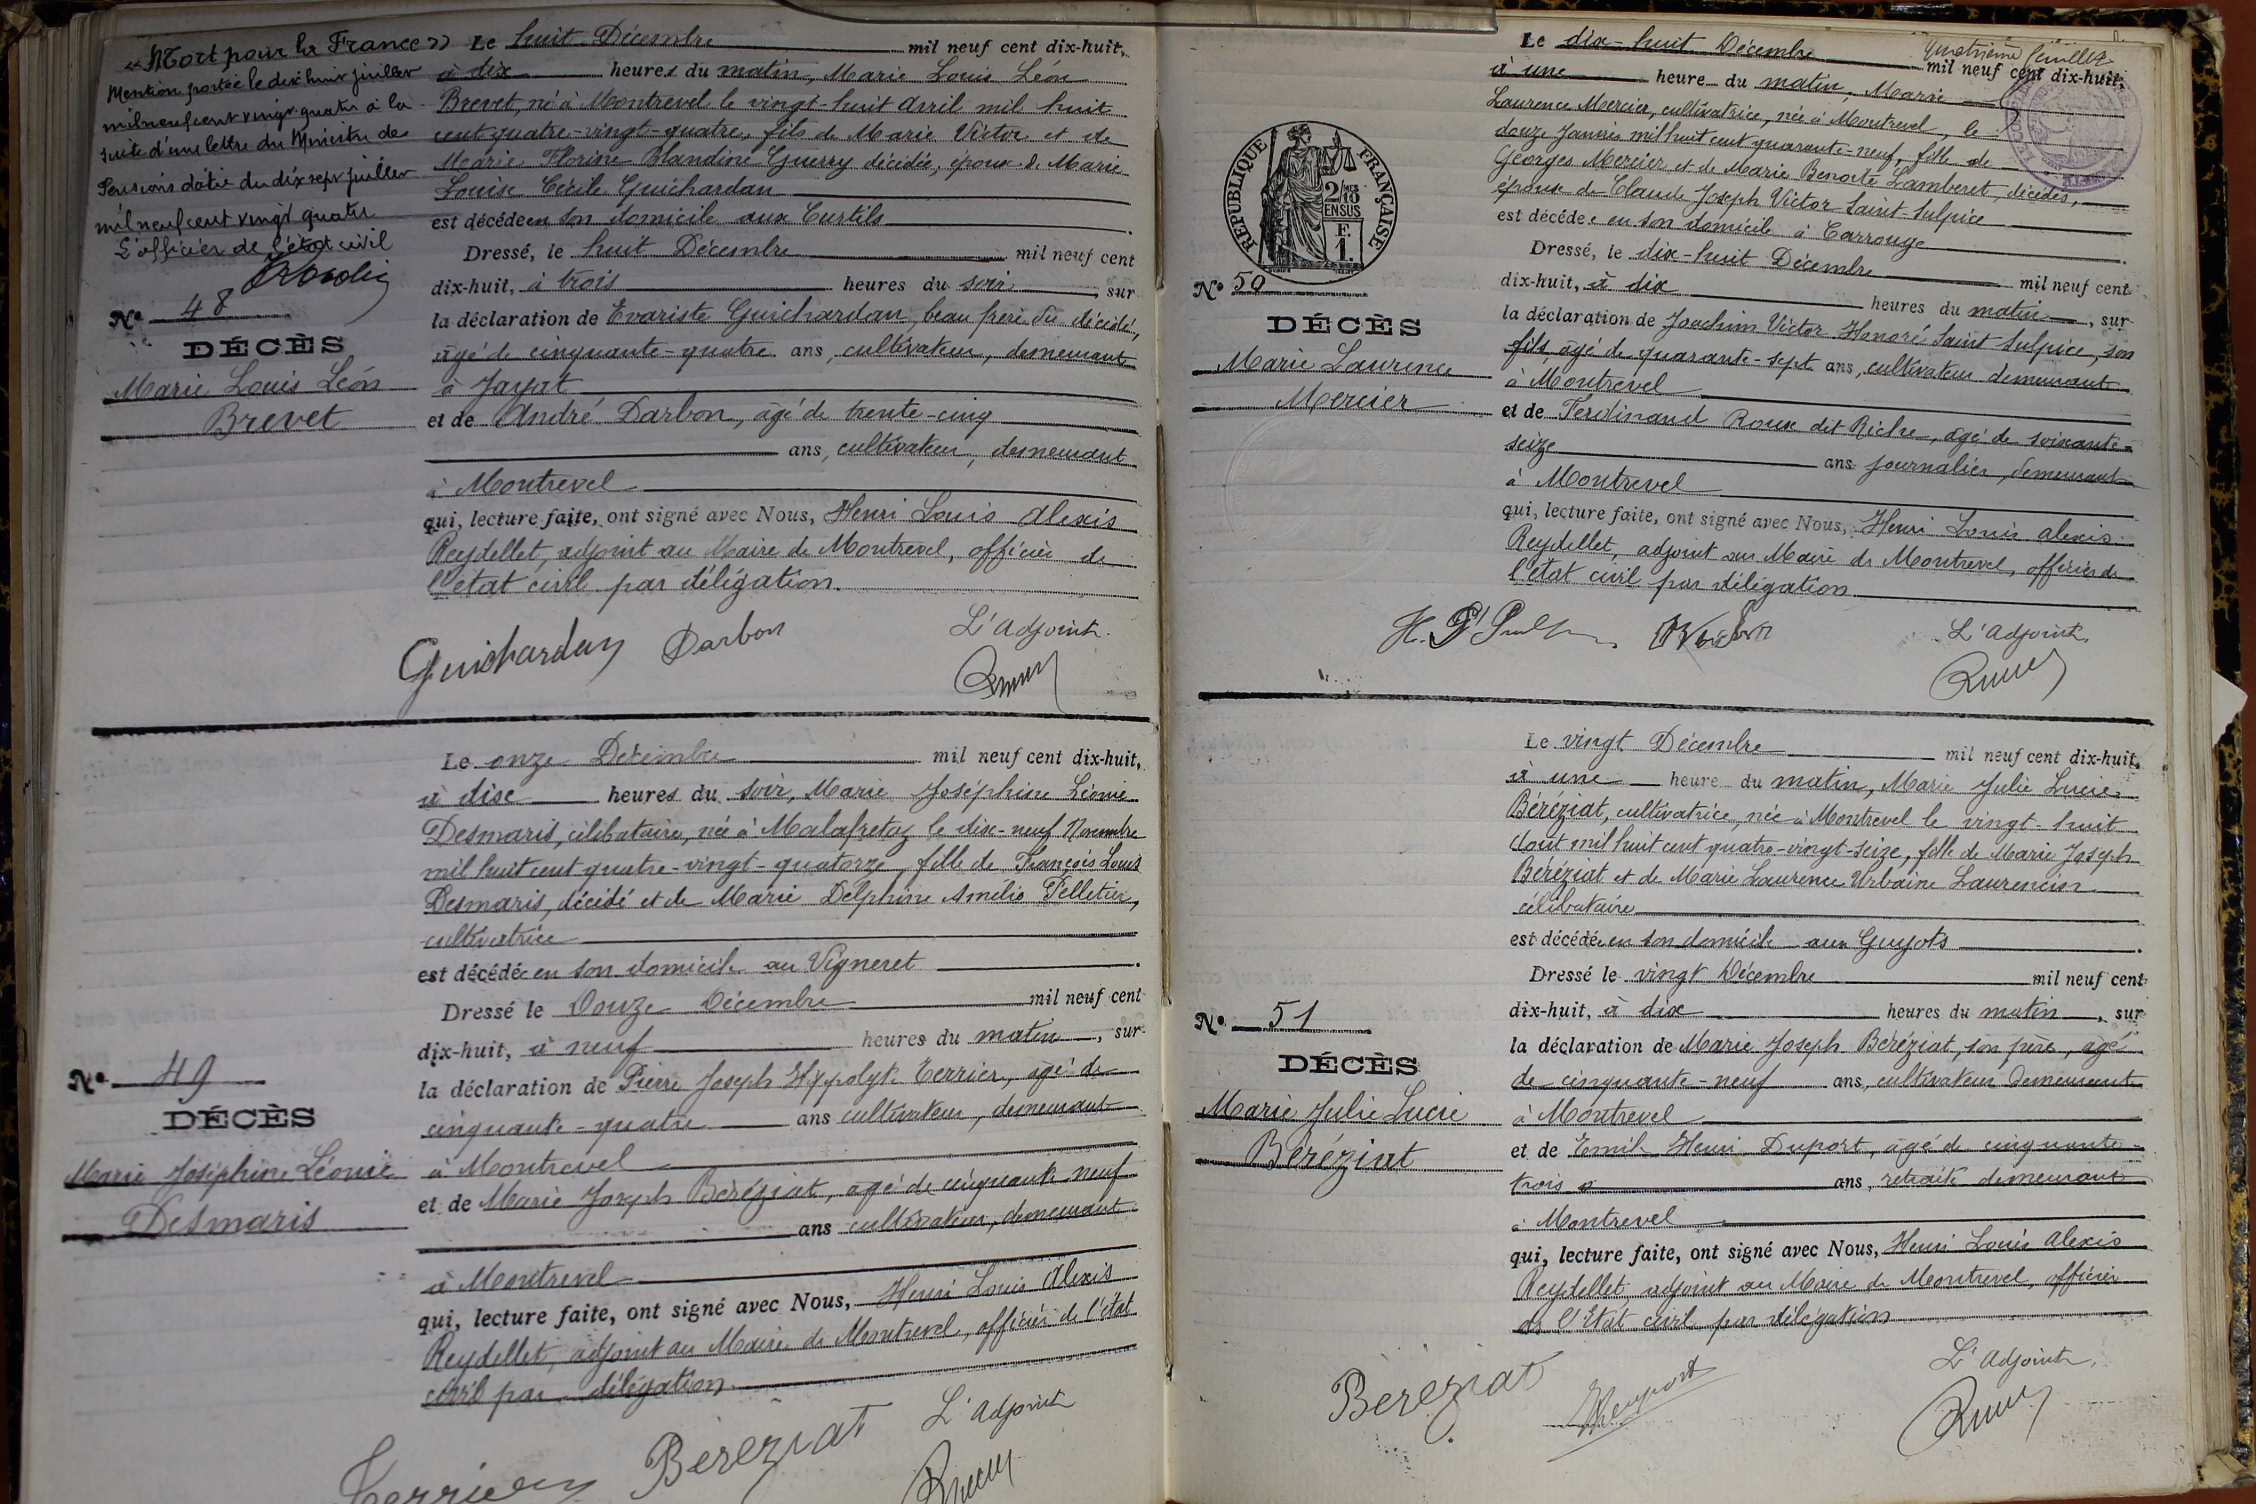 « Mort pour la France »
Mention portée le dix huit juillet
mil neuf cent vingt quatre à la
suite d'une lettre du Ministre des
Pensions datée du dix sept juillet
mil neuf cent vingt quatre
L'officier de l'état civil
Nº 48
DÉCÈS
Marie Louis Léon
Brevet
Le huit Décembre mil neuf cent dix-huit,
à dix heures du matin, Marie Louis Léon
Brevet, né à Montrevel le vingt-huit avril mil huit
cent quatre-vingt-quatre, fils de Marie Victor et de
Marie Florine Blandine Guerry décédée, époux de Marie
Louise Cécile Guichardan
est décédé en son domicile aux Curtils
Dressé, le huit Décembre mil neuf cent
dix-huit, à trois heures du soir, sur
la déclaration de Evariste Guichardan, beau frère du décédé,
âgé de cinquante-quatre ans, cultivateur, demeurant
à Jayat
et de André Darbon, âgé de trente-cinq
ans, cultivateur, demeurant
à Montrevel
qui, lecture faite, ont signé avec Nous, Henri Louis Alexis
Reydellet, adjoint au Maire de Montrevel, officier de
l'état civil par délégation.
Guichardan Darbon L'Adjoint
Nº 49
DÉCÈS
Marie Joséphine Léonie
Desmaris
Le onze Décembre mil neuf cent dix-huit,
à dix heures du soir, Marie Joséphine Léonie
Desmaris, célibataire, née à Malafretaz le dix-neuf Novembre
mil huit cent quatre-vingt-quatorze, fille de François Louis
Desmaris, décédé et de Marie Delphine Amélie Pelletier,
cultivatrice
est décédée en son domicile au Vigneret
Dressé le Douze Décembre mil neuf cent
dix-huit, à neuf heures du matin, sur
la déclaration de Pierre Joseph Hyppolyte Terrier, âgé de
cinquante-quatre ans cultivateur, demeurant
à Montrevel
et de Marie Joseph Béréziat, âgé de cinquante neuf
ans cultivateur, demeurant
à Montrevel
qui, lecture faite, ont signé avec Nous, Henri Louis Alexis
Reydellet, adjoint au Maire de Montrevel, officier de l'état
civil par délégation.
Terrier Béréziat L'Adjoint
Quatrième feuillet
RÉPUBLIQUE FRANÇAISE
2/10
EN SUS
F.
1.
Nº 50
DÉCÈS
Marie Laurence
Mercier
Le dix-huit Décembre mil neuf cent dix-huit,
à une heure du matin, Marie
Laurence Mercier, cultivatrice, née à Montrevel, le
douze Janvier mil huit cent quarante-neuf, fille de
Georges Mercier et de Marie Benoite Lamberet, décédés,
épouse de Claude Joseph Victor Saint-Sulpice
est décédée en son domicile à Carrouge
Dressé, le dix-huit Décembre mil neuf cent
dix-huit, à dix heures du matin, sur
la déclaration de Joachim Victor Honoré Saint-Sulpice, son
fils, âgé de quarante-sept ans, cultivateur demeurant
à Montrevel
et de Ferdinand Roux dit Riche, âgé de soixante-
seize ans journalier, demeurant
à Montrevel
qui, lecture faite, ont signé avec Nous, Henri Louis Alexis
Reydellet, adjoint au Maire de Montrevel, officier de
l'état civil par délégation
L'Adjoint
Nº 51
DÉCÈS
Marie Julie Lucie
Béréziat
Le vingt Décembre mil neuf cent dix-huit,
à une heure du matin, Marie Julie Lucie
Béréziat, cultivatrice, née à Montrevel le vingt-huit
Août mil huit cent quatre-vingt-seize, fille de Marie Joseph
Béréziat et de Marie Laurence Urbaine Laurencin
célibataire
est décédée en son domicile aux Guyots
Dressé le vingt Décembre mil neuf cent
dix-huit, à dix heures du matin, sur
la déclaration de Marie Joseph Béréziat, son père, âgé
de cinquante-neuf ans, cultivateur demeurant
à Montrevel
et de Emile Henri Duport, âgé de cinquante-
trois ans, retraité demeurant
à Montrevel
qui, lecture faite, ont signé avec Nous, Henri Louis Alexis
Reydellet adjoint au Maire de Montrevel, officier
de l'Etat civil par délégation
Béréziat Duport L'Adjoint